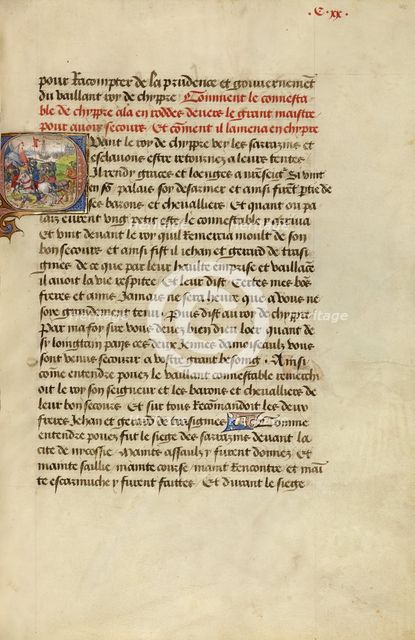 .C.xx.
pour racompter de la prudence et gouvernement
du vaillant roy de chyppre Comment le connesta
ble de chyppre ala en roddes devers le grant maistre
pour avoir secours Et cõment il lamena en chypre
Quant le roy de chyppre vey les sarrazins et
esclavons estre retournez a leurs tentes
Il rendy graces et loenges a nreseigr Si vint
en so palais soy desarmer et ainsi firẽt ptie de
ses barons et chevalliers Et quant ou pa
lais eurent ung petit este le connestable y arriva
Et vint devant le roy qui remercia moult de son
bon secours et ainsi fist il iehan et gerard de trasi
gnies de ce que par leur haulte emprise et vaillãce
il avoit la vie respitee Et leur dist Certes mes bõs
freres et amis Jamais ne sera heure que a vous ne
soye grandement tenu Puis dist au roy de chyppre
Par ma foy sire vous devez bien dieu loer quant de
sy longtain pays ces deux Jennes damoiseaulx vous
sont venus secourir a vostre grant besoing . Ainsi
cõme entendre povez le vaillant connestable remerchi
oit le roy son seigneur et les barons et chevalliers de
leur bon secours Et sur tous recõmandoit les deux
freres Jehan et gerard de trasignies Comme
entendre povez fut le siege des sarrazins devant la
cite de nycossie Mainte assaulz y furent donnez Et
mainte saillie mainte course maint rencontre et mai
te escarmuche y furent faittes Et durant le siege
Heritage Images